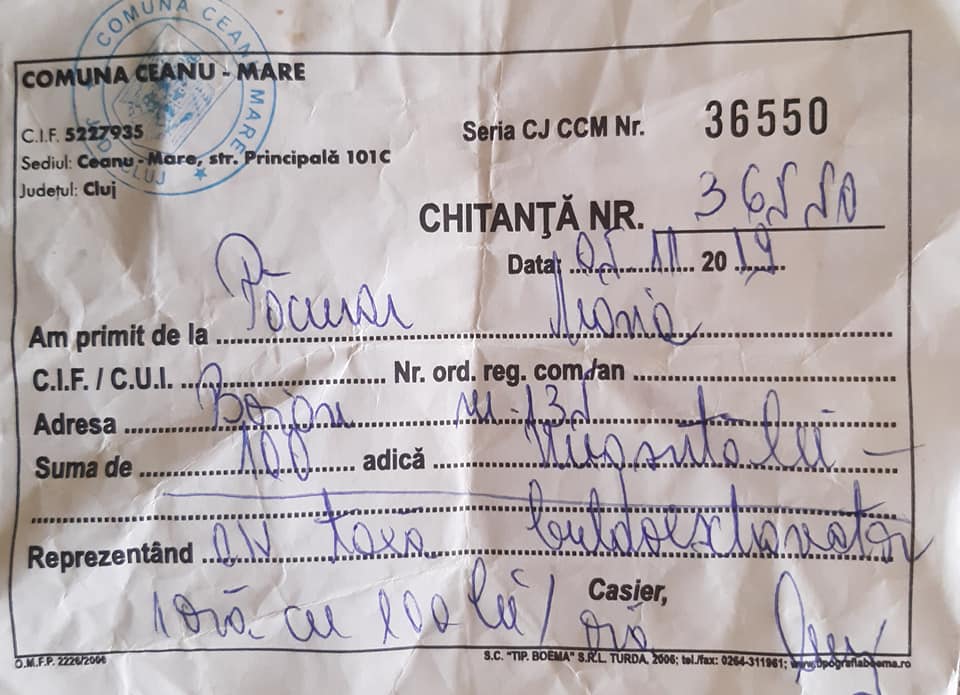 COMUNA CEANU MARE
JUD. CLUJ
COMUNA CEANU - MARE
C.I.F. 5227935
Sediul: Ceanu - Mare, str. Principală 101C
Județul: Cluj
Seria CJ CCM Nr. 36550
CHITANŢĂ NR. 36550
Data: 05 11 2019
Am primit de la Păcurar Maria
C.I.F. / C.U.I. Nr. ord. reg. com/an
Adresa Boian nr. 135
Suma de 100 adică unasutalei
Reprezentând cv taxă buldoexcavator
1 oră cu 100 lei / oră
Casier,
O.M.F.P. 2226/2006
S.C. "TIP. BOEMA" S.R.L. TURDA, 2006; tel./fax: 0264-311961; www.tipografiaboema.ro